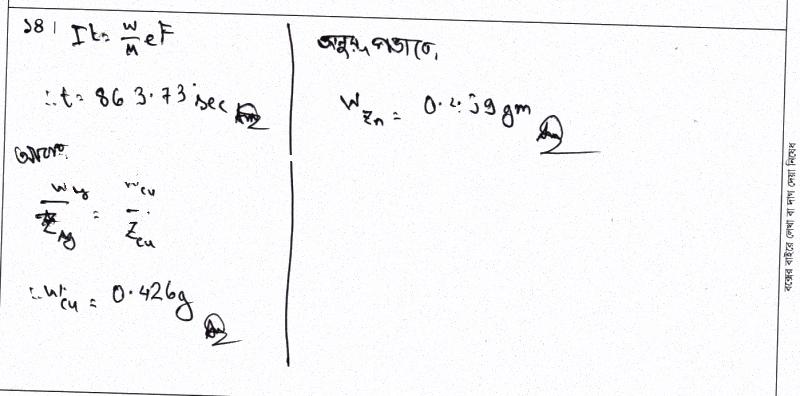 ১৪। It = W/M eF
∴ t = 863.73 sec Ans
আবার,
W Ag / Z Ag = W Cu / Z Cu
∴ W Cu = 0.426g
Ans
অনুরূপভাবে,
W Zn = gm
Ans
বক্সের বাইরে লেখা বা দাগ দেয়া নিষেধ